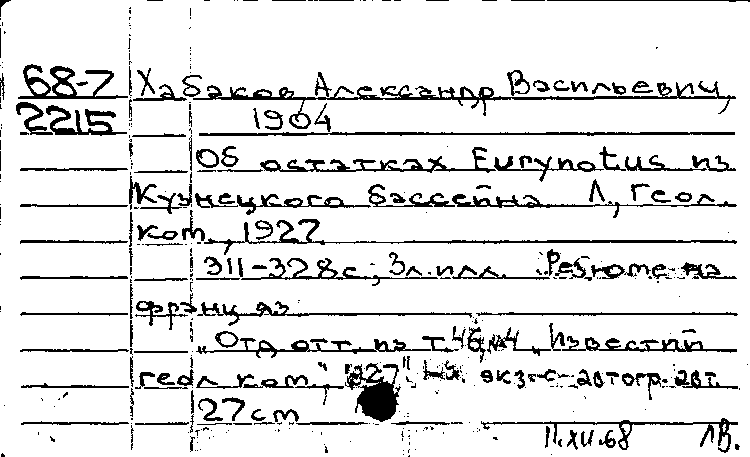 68-7 Хабаков Александр Васильевич,
2215 1904
Об остатках Eurynotus из
Кузнецкого бассейна Л., Геол.
ком., 1927
311-328 с; 3 л. илл. Резюме на
франц яз
"Отд отт. из т. 46, №4 "Известий
геол ком.", 1927". На экз-с автогр. авт.
27cm
11.XII.68 ЛВ.